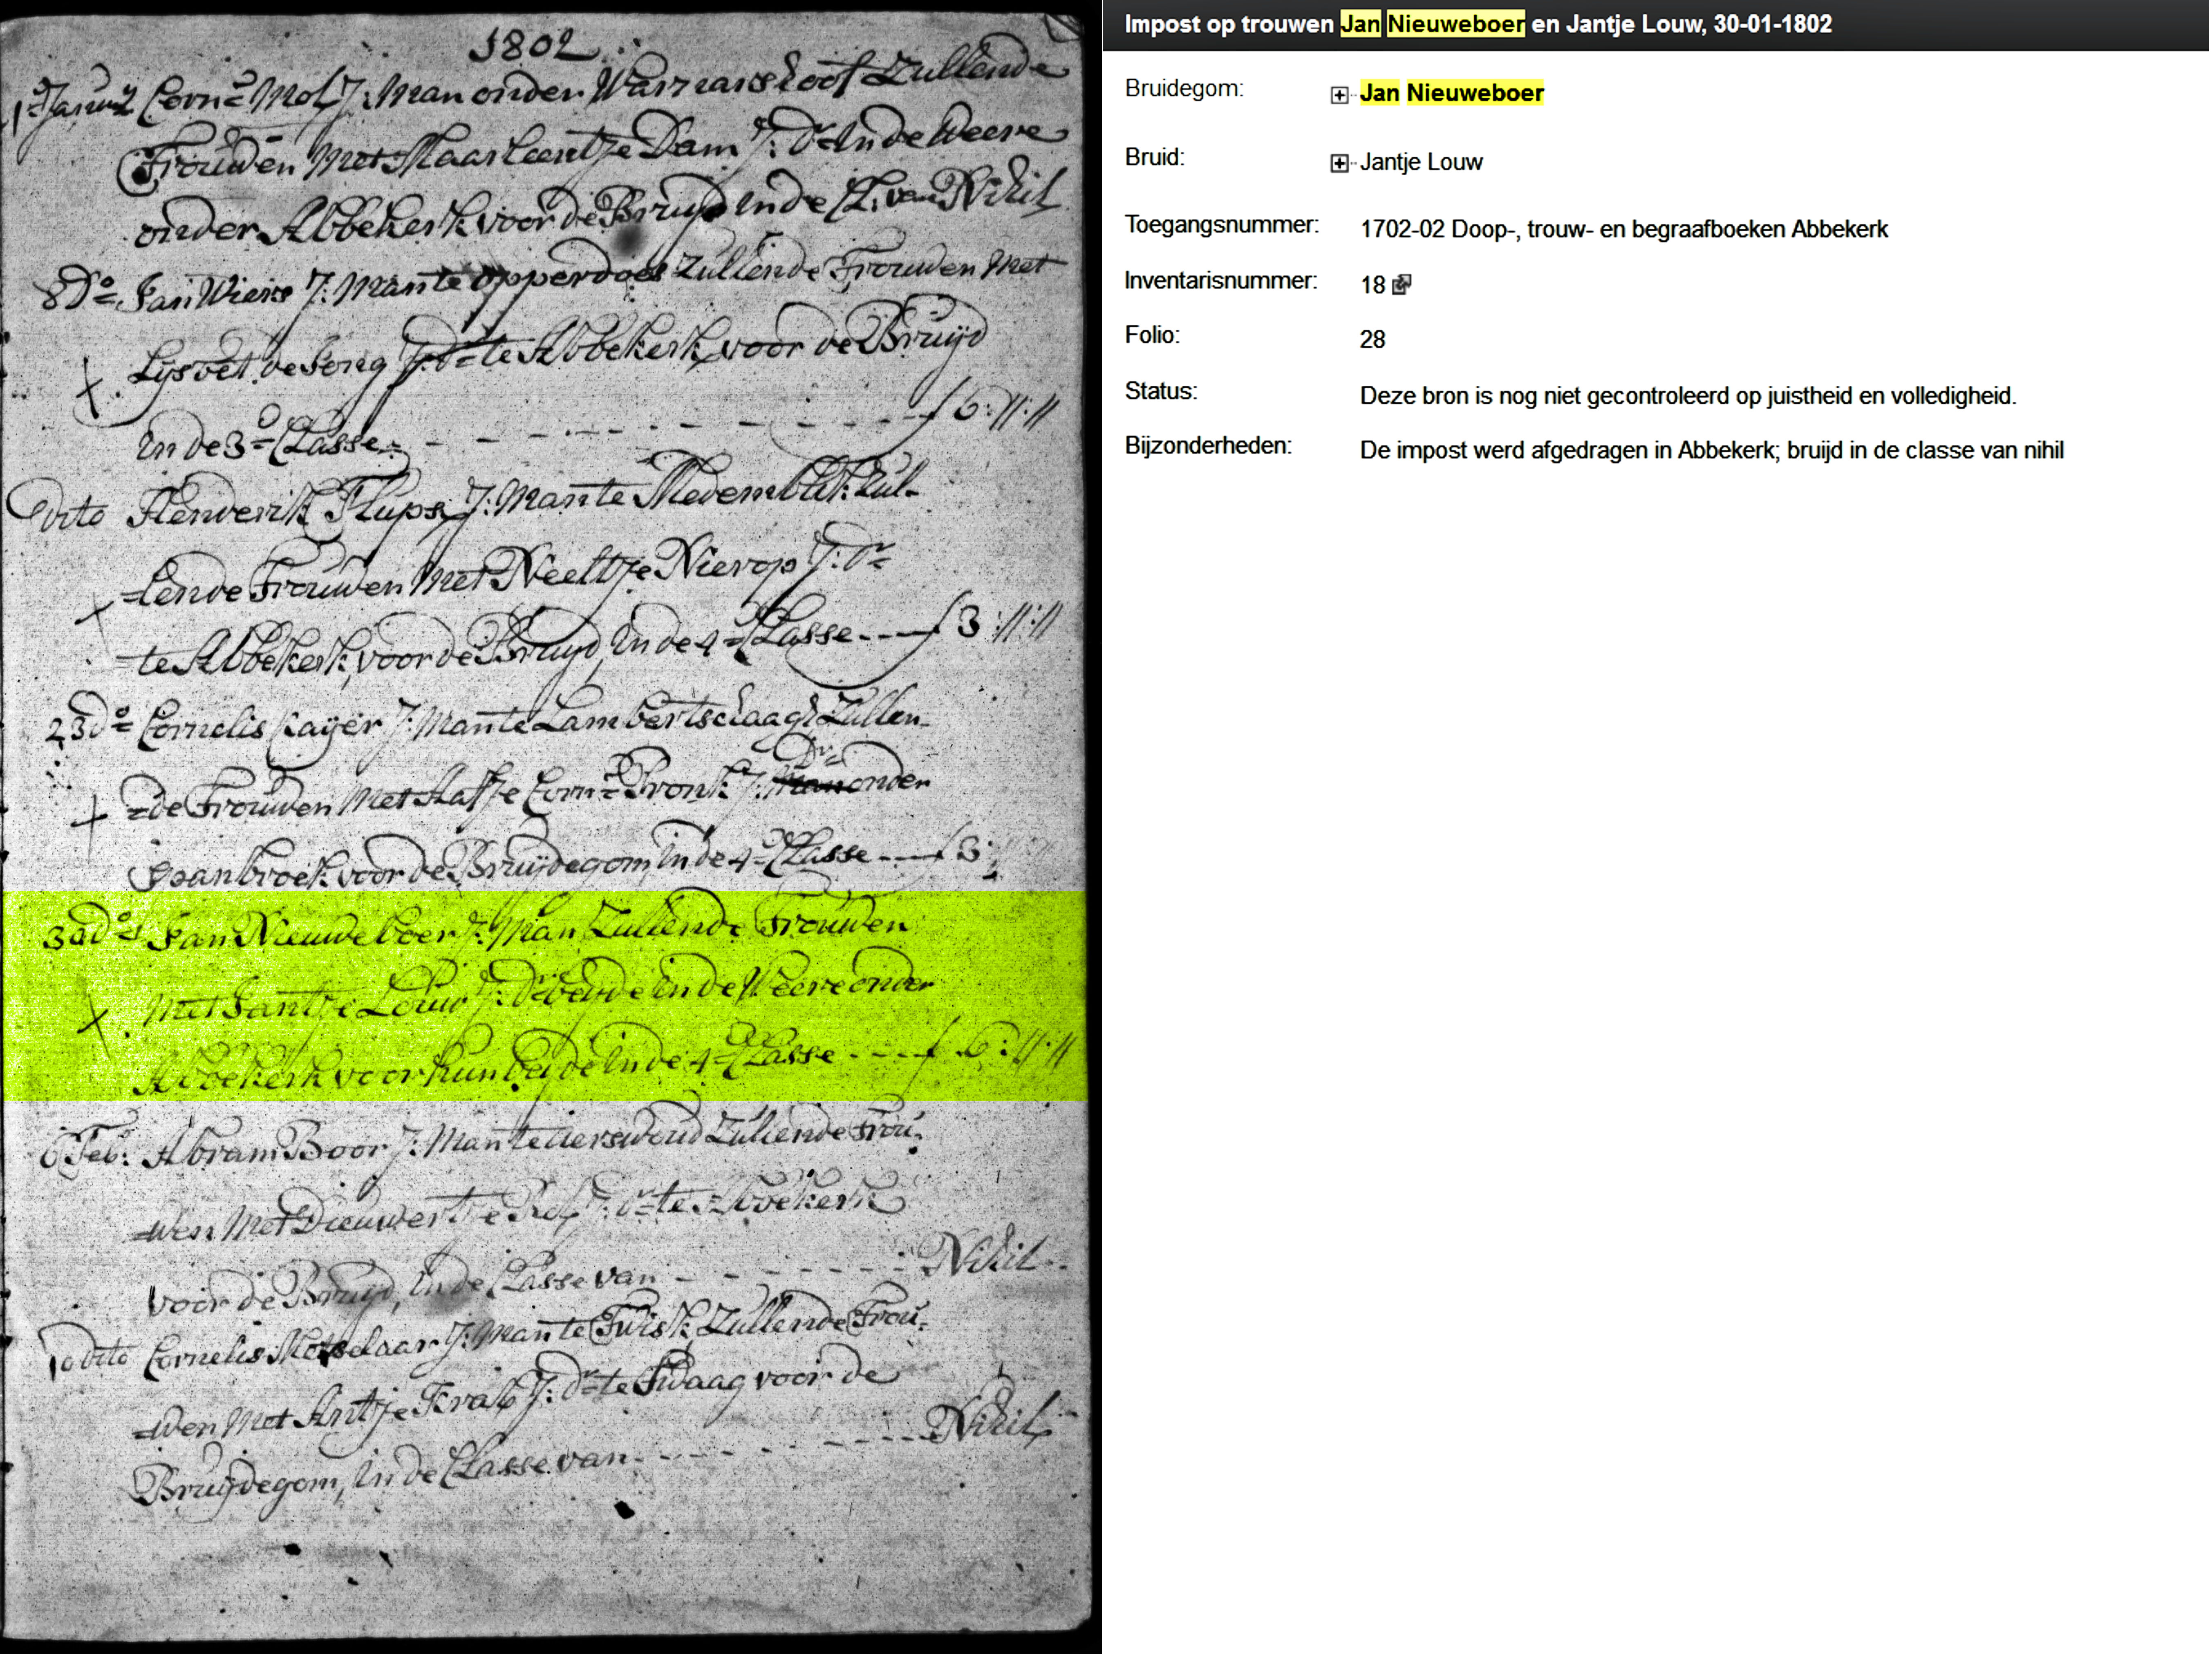 1802
1=Januy Corn=s Mol J: Man onder Warnarshoof Zullende
Trouwen Met Maartentje Dam J: Dr In de Weere
onder Abbekerk voor de Bruyd In de Cl: van Nihil
8 Do= Jan Wiers J: Man te opperdoes Zullende Trouwen Met
Lysbet de Jong J: dr= te Abbekerk voor de Bruyd
In de 3=e Classe f 6:,,:,,
Dito Henderik Flups J: Man te Medemblik: Zul-
=lende Trouwen Met Neeltje Nierop J: dr=
te Abbekerk, voor de Bruyd, In de 4=e Classe f 3:,,:,,
23 do= Cornelis Kayer J: Man te Lambertschaagh Zullen-
=de Trouwen Met Aafje Corn=s Bronk J: Dr= onder
Spanbroek voor de Bruydegom In de 4=e Classe f 3:
30 do= Jan Nieuweboer J: Man Zullende Trouwen
Met Jantje Louw J: Dr beyde In de Weere onder
Abbekerk voor hun beyde In de 4=e Classe f 6:,,:,,
6 Feb: Abram Boor J: Man te aerswoud Zullende Trou-
=wen Met Dieuwertje Rol J: dr= te Abbekerk
voor de Bruyd, In de Classe van Nihil
10 dito Cornelis Metselaar J: Man te Twisk, Zullende Trou-
=wen Met Antje Krab J: dr= te Swaag voor de
Bruydegom, In de Classe van Nihil
Impost op trouwen Jan Nieuweboer en Jantje Louw, 30-01-1802
Bruidegom: Jan Nieuweboer
Bruid: Jantje Louw
Toegangsnummer: 1702-02 Doop-, trouw- en begraafboeken Abbekerk
Inventarisnummer: 18
Folio: 28
Status: Deze bron is nog niet gecontroleerd op juistheid en volledigheid.
Bijzonderheden: De impost werd afgedragen in Abbekerk; bruijd in de classe van nihil